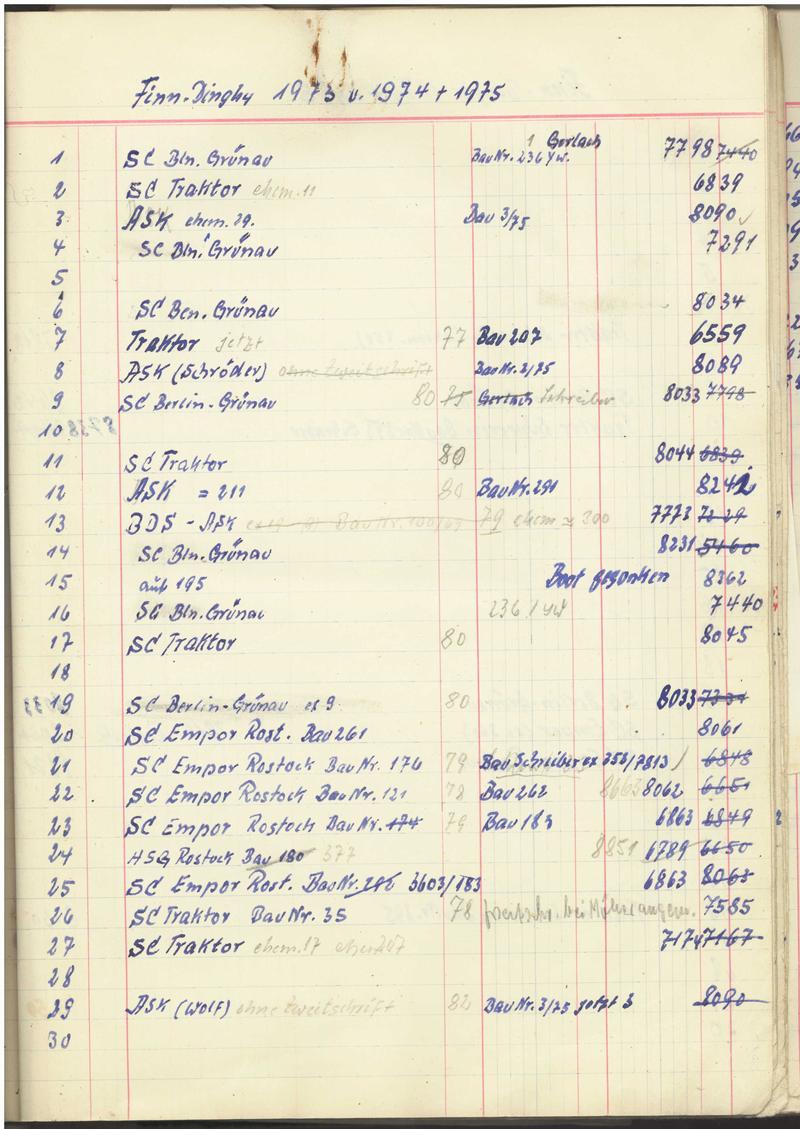 Finn-Dinghy 1973 u. 1974 + 1975
1 SC Bln. Grünau BauNr. 236 YW. 1 Gerlach 7798 7440
2 SC Traktor ehem. 11 6839
3 ASK ehem. 29. Bau 3/75 8090
4 SC Bln. Grünau 7291
5
6 SC Ben. Grünau 8034
7 Traktor jetzt 77 Bau 207 6559
8 ASK (Schröder) ohne Zweitschrift BauNr. 2/75 8089
9 SC Berlin-Grünau 80 75 Gerlach Schreiber 8033 7798
10
11 SC Traktor 80 8044 6839
12 ASK = 211 80 BauNr. 291 8242
13 BDS - ASK BauNr. 79 ehem 200 7773 7229
14 SC Bln. Grünau 8231 5460
15 auf 195 Boot gesunken 8262
16 SC Bln. Grünau 236 / YW 7440
17 SC Traktor 80 8045
18
19 SC Berlin-Grünau ex 9 80 8033 7331
20 SC Empor Rost. Bau 261 8061
21 SC Empor Rostock BauNr. 176 79 Bau Schreiber ex 352/7813 6848
22 SC Empor Rostock BauNr. 121 78 Bau 262 8663 8062 6651
23 SC Empor Rostock BauNr. 174 79 Bau 183 6863 6849
24 HSG Rostock Bau 180 377 8851 6789 6650
25 SC Empor Rost. BauNr. 3603/183 6863 8063
26 SC Traktor BauNr. 35 78 bei 7585
27 SC Traktor ehem. 17 7174 7167
28
29 ASK (Wolf) ohne Zweitschrift 82 BauNr. 3/75 jetzt 3 8090
30